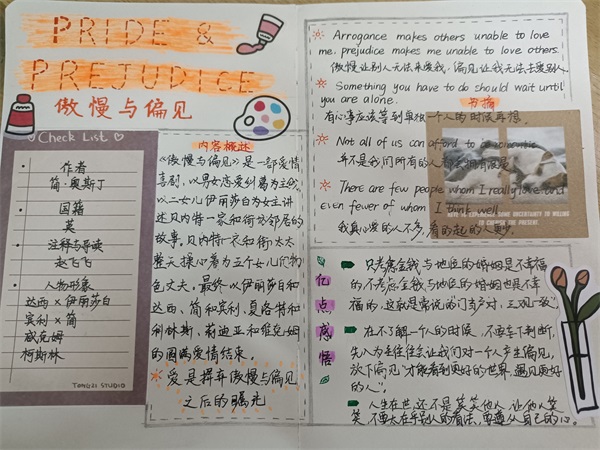 PRIDE &
PREJUDICE
傲慢与偏见
Check List
作者
简·奥斯丁
国籍
英
注释与导读
赵飞飞
人物形象
达西×伊丽莎白
宾利×简
威克姆
柯斯林
TONGZI STUDIO
内容概述
《傲慢与偏见》是一部爱情
喜剧,以男女恋爱纠葛为主线,
以二女儿伊丽莎白为女主讲
述贝内特一家和街坊邻居的
故事,贝内特一家和街太太
整天操心着为五个女儿们物
色丈夫。最终以伊丽莎白和
达西、简和宾利、夏洛特和
利林斯、莉迪亚和维克姆
的圆满爱情结束。
爱是摒弃傲慢与偏见
之后的曙光
Arrogance makes others unable to love
me, prejudice makes me unable to love others.
傲慢让别人无法来爱我,偏见让我无法去爱别人。
Something you have to do should wait until
you are alone.
书摘
有心事应该等到单独一个人的时候再想。
Not all of us can afford to be romantic
并不是我们所有的人都会拥有浪漫。
There are few people whom I really love and
even fewer of whom I think well.
我真心爱的人不多,看的起的人更少。
TO CHOOSE FOR PRESENT
亿点感悟
只考虑金钱与地位的婚姻是不幸福
的,不考虑金钱与地位的婚姻也是不幸
福的,这就是常说的"门当户对,三观一致"。
在不了解一个人的时候,不要妄下判断,
先入为主往往会让我们对一个人产生偏见,
"放下偏见"才能看到更好的世界,遇见更好
的人"。
人生在世,还不是笑笑他人,让他人笑
笑,不要太在乎别人的看法,尊遵从自己的心。